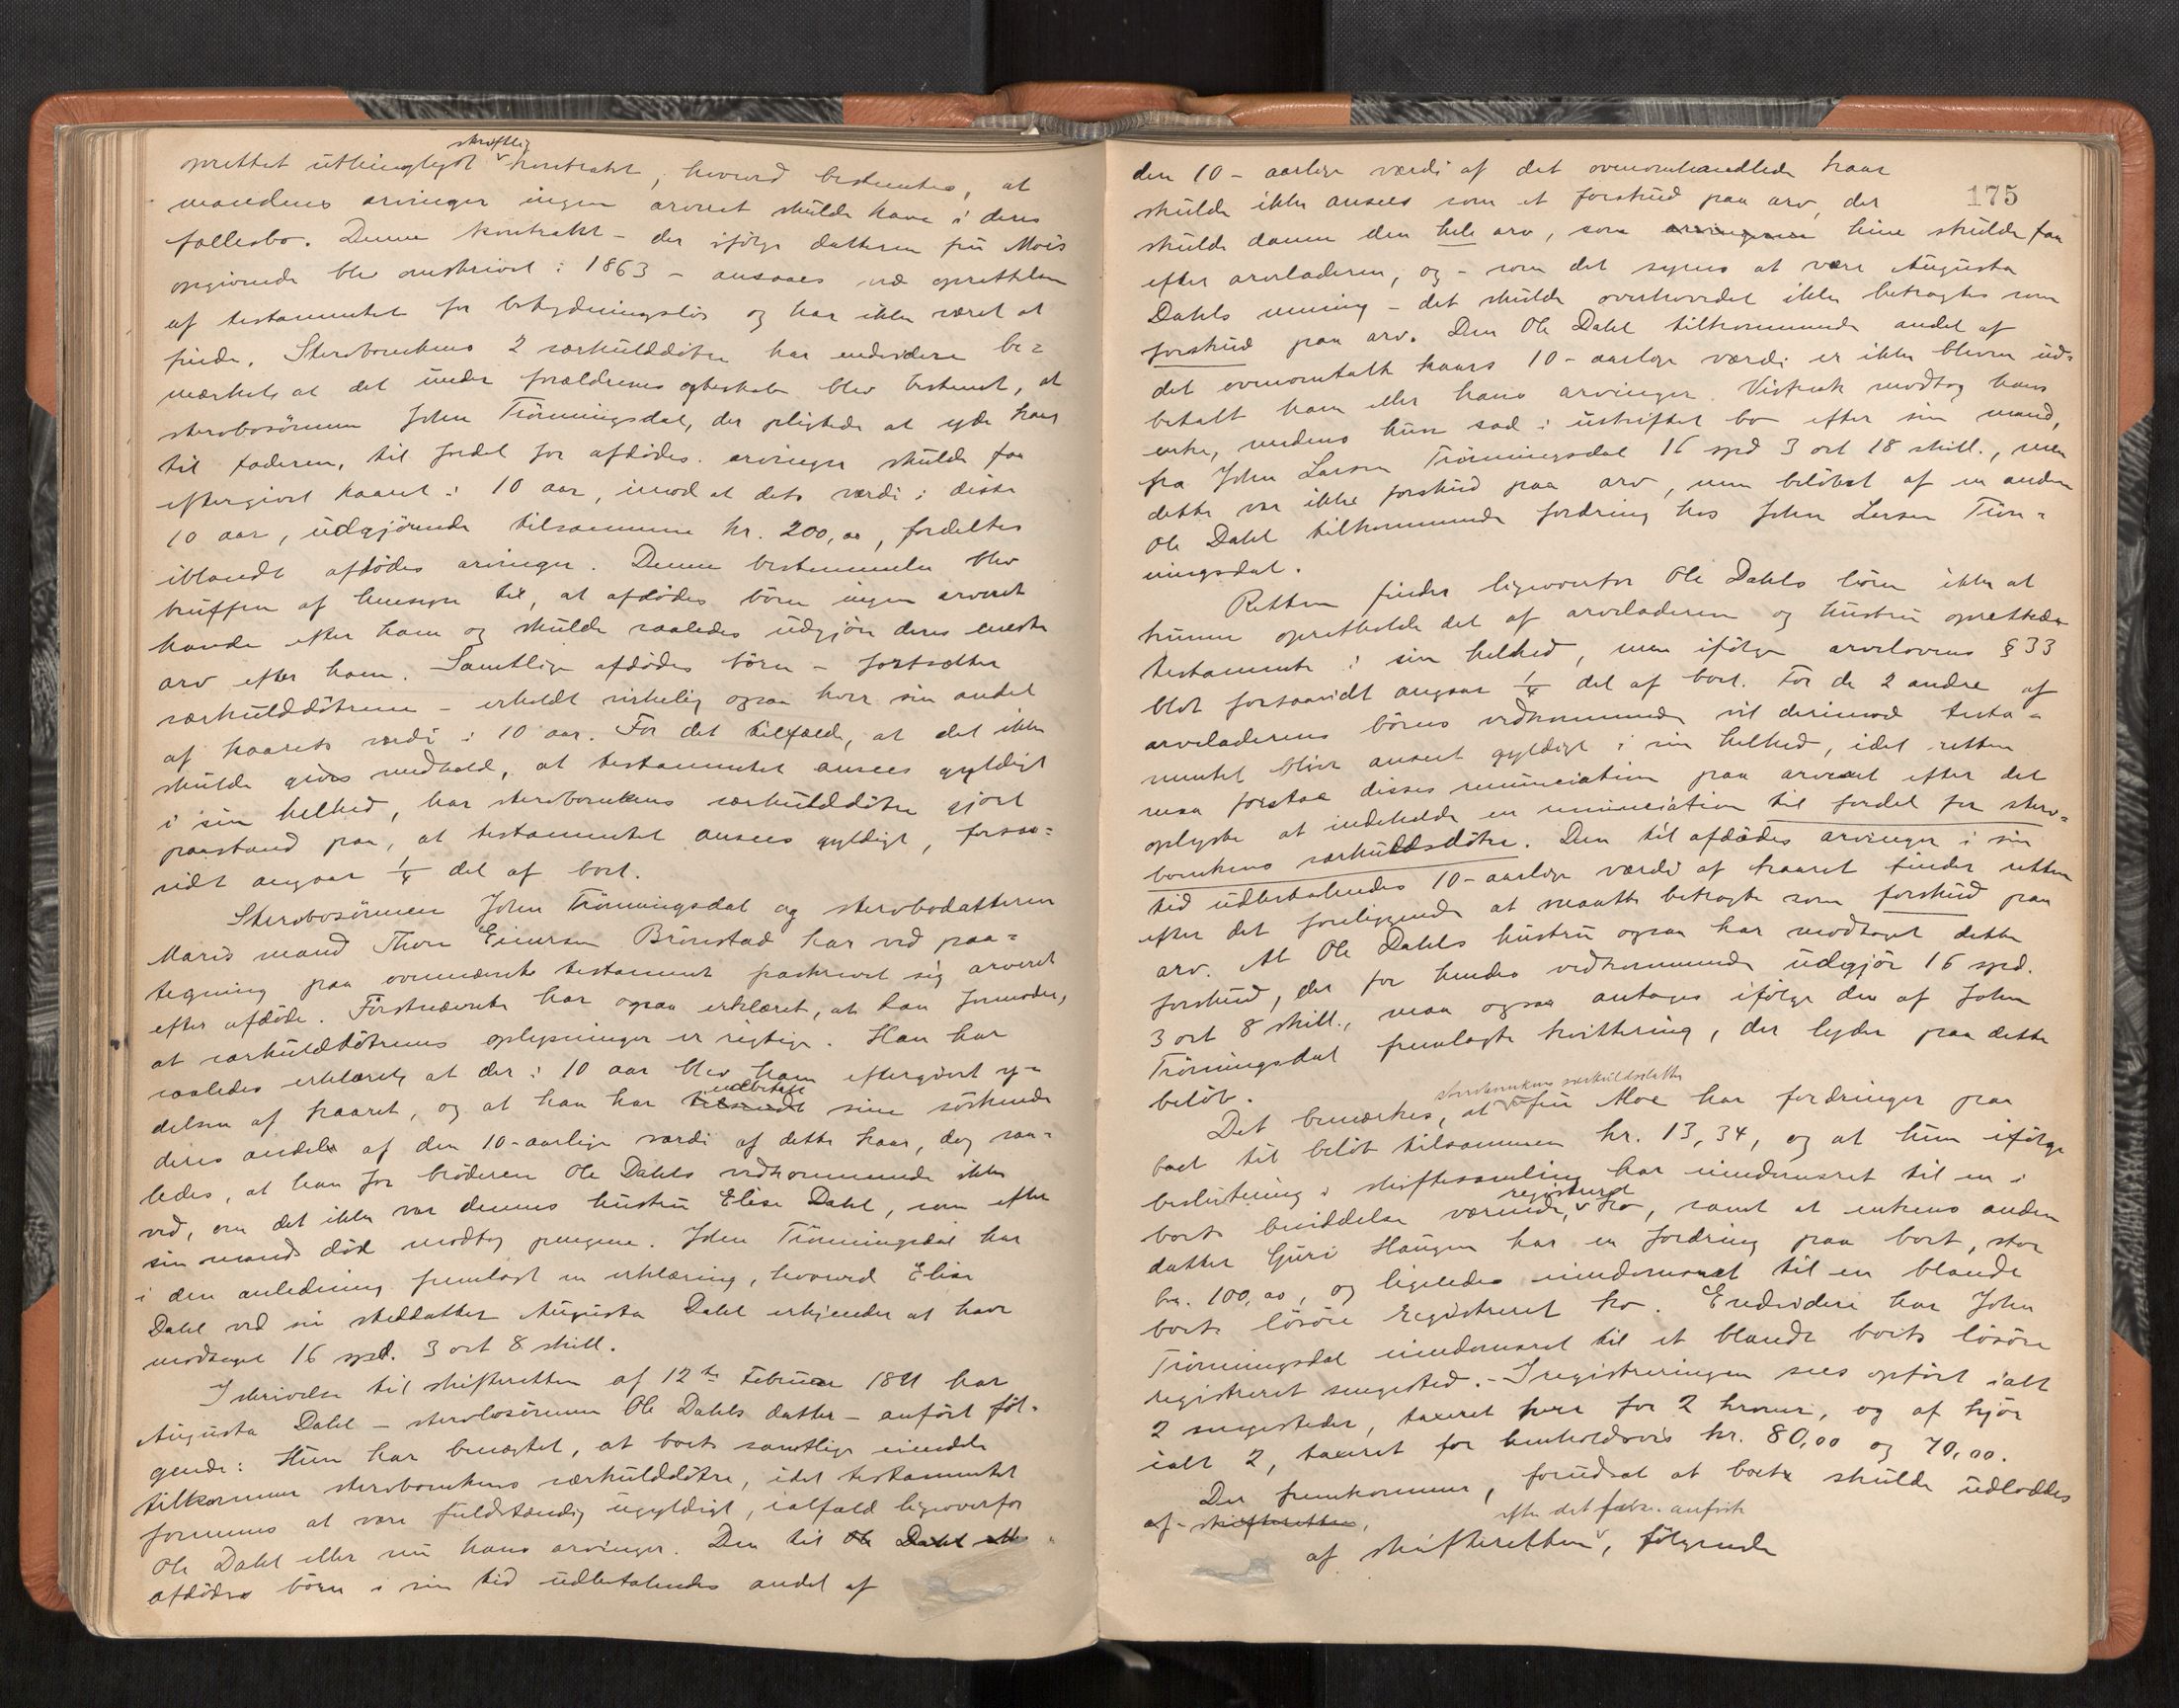 skriftlig
oprettet uthinglyst kontrakt, hvorved bestemtes, at
mandens arvinger ingen arveret skulde have i deres
fællesbo. Denne kontrakt – der ifølge datteren fru Moes
opgivende blev omskrivet i 1863 – ansaaes ved oprettelsen
af testamentet for betydningsløs og har ikke været at
finde. Stervboenkens 2 særkulddøtre har endvidere be=
mærket, at det under forældrenes ægteskab blev bestemt, at
stervbosønnen John Trönningsdal, der pligtede at yde kaar
til faderen, til fordel for afdødes arvinger skulde faa
eftergivet kaaret i 10 aar, imod at dets værdi i disse
10 aar, udgjörende tilsammen kr. 200,00, fordeltes
iblandt afdødes arvinger. Denne bestemmelse blev
truffen af hensyn til, at afdødes börn ingen arveret
havde efter ham og skulde saaledes udgjöre deres eneste
arv efter ham. Samtlige afdødes börn – fortsætter
særkulddøtrene – erholdt virkelig ogsaa hver sin andel
af kaarets værdi i 10 aar. For det tilfælde, at det ikke
skulde gives medhold, at testamentet ansees gyldigt
i sin helhed, har stervboenkens særkulddøtre gjort
paastand paa, at testamentet ansees gyldigt, forsaa=
vidt angaar 1/4 del af boet.
Stervbosönnen John Trönningsdal og stervbodatteren
Maris mand Thore Einersen Brönstad har ved paa=
tegning paa ovennævnte testament fraskrevet sig arveret
efter afdøde. Förstnævnte har ogsaa erklæret, at han formoder,
at særkulddøtrenes oplysninger er rigtige. Han har
saaledes erklæret, at der i 10 aar blev ham eftergivet y=
udbetalt
delsen af kaaret, og at han har tilsendt sine söskende
deres andele af den 10-aarlige værdi af dette kaar, dog saa=
ledes, at han for broderen Ole Dahls vedkommende ikke
ved, om det ikke var dennes hustru Elise Dahl, som efter
sin mands död modtog pengene. John Trönningsdal har
i den anledning fremlagt en erklæring, hvorved Elise
Dahl ved sin steddatter Augusta Dahl erkjender at have
modtaget 16 spd. 3 ort 8 skill.
I skrivelse til skifteretten af 12te Februar 1891 har
Augusta Dahl – stervbosönnen Ole Dahls datter – anfört föl=
gende: Hun har benægtet, at boets samtlige eiendele
tilkommer stervboenkens særkulddötre, idet testamentet
formenes at være fuldstændig ugyldigt, ialfald ligeoverfor
Ole Dahl eller nu hans arvinger. Den til Ole Dahl
afdødes börn i sin tid udbetalendes andel af
175
den 10-aarlige værdi af det ovenomhandlede kaar
skulde ikke ansees som et forskud paa arv, der
skulde danne den hele arv, som arvingerne hine skulde faa
efter arveladeren, og – som det synes at være Augusta
Dahls mening – det skulde overhovedet ikke betragtes som
forskud paa arv. Den Ole Dahl tilkommende andel af
det ovenomtalte kaars 10-aarlige værdi er ikke bleven ud=
betalt ham eller hans arvinger. Vistnok modtog hans
enke, medens hun sad i uskiftet bo efter sin mand,
fra John Larsen Trönningsdal 16 spd 3 ort 18 skill., men
dette var ikke forskud paa arv, men belöbet af en anden
Ole Dahl tilkommende fordring hos John Larsen Trön=
ningsdal.
Retten finder ligeoverfor Ole Dahls börn ikke at
kunne opretholde det af arveladeren og hustru oprettede
testamente i sin helhed, men ifölge arvelovens § 33
blot forsaavidt angaar 1/4 del af boet. For de 2 andre af
arveladerens börns vedkommende vil derimod testa=
mentet blive anseet gyldigt i sin helhed, idet retten
maa forstaa disses renunciation paa arveret efter det
oplyste at indeholde en renunciation til fordel for sterv=
boenkens særkuldsdötre. Den til afdødes arvinger i sin
tid udbetalendes 10-aarlige værdi af kaaret finder retten
efter det foreliggende at maatte betragte som forskud paa
arv. At Ole Dahls hustru ogsaa har modtaget dette
forskud, der for hendes vedkommende udgjör 16 spd.
3 ort 8 skill., maa ogsaa antages ifölge den af John
Trönningsdal fremlagte kvittering, der lyder paa dette
belöb.
stervboenkens særkuldsdatter
Det bemærkes, at fru Moe har fordringer paa
boet til belöb tilsammen kr. 13,34, og at hun ifölge
beslutning i skiftesamling har eiendomsret til en i
registreret
boets besiddelse værende, ko, samt at enkens anden
datter Guri Haugen har en fordring paa boet, stor
kr. 100,00, og ligeledes eiendomsret til en blandt
boets lösöre registreret ko. Endvidere har John
Trönningsdal eiendomsret til et blandt boets lösöre
registreret sengested. – I registreringen sees opfört ialt
2 sengesteder, taxeret hver for 2 kroner, og af kjör
ialt 2, taxeret for henholdsvis kr. 80,00 og 70,00.
Der fremkommer, forudsat at boet skulde udloddes
af skifteretten, efter det anförte
af skifteretten, fölgende